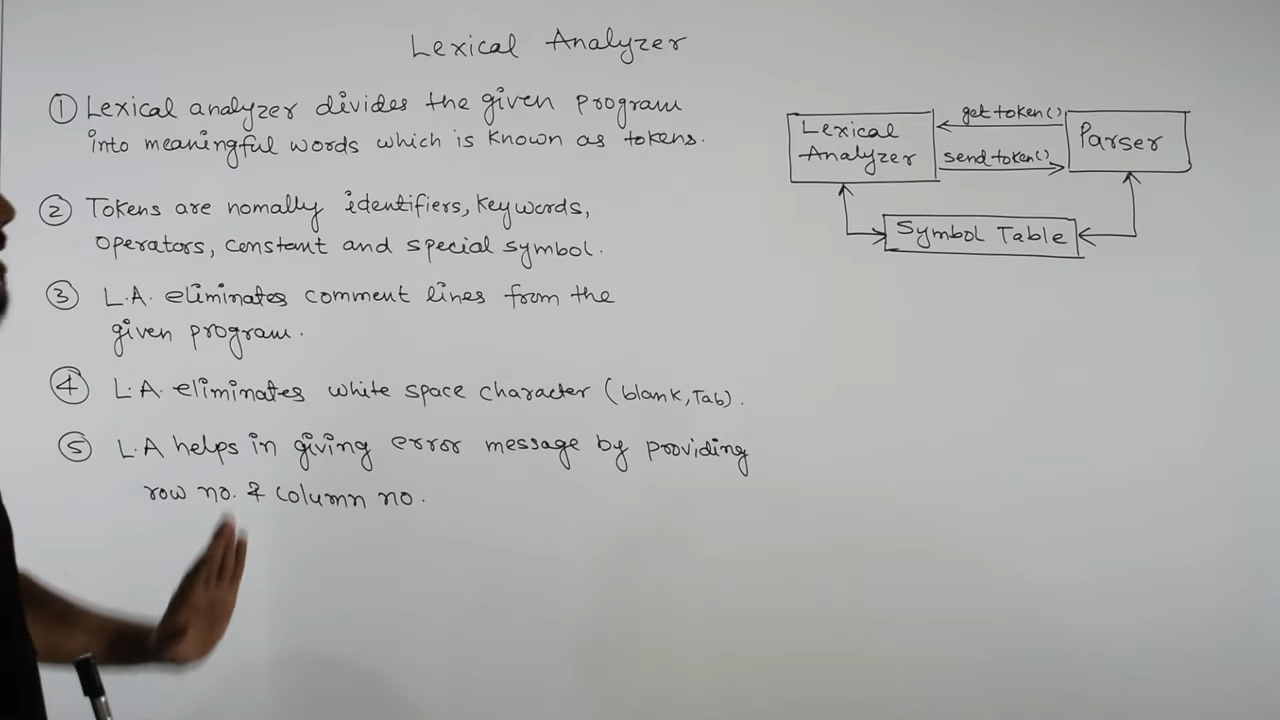 Lexical Analyzer
① Lexical analyzer divides the given program
into meaningful words which is known as tokens.
② Tokens are nomally identifiers, keywords,
operators, constant and special symbol.
③ L.A. eliminates comment lines from the
given program.
④ L.A. eliminates white space character (blank, Tab).
⑤ L.A helps in giving error message by providing
row no. & column no.
Lexical
Analyzer
get token()
send token()
Parser
Symbol Table